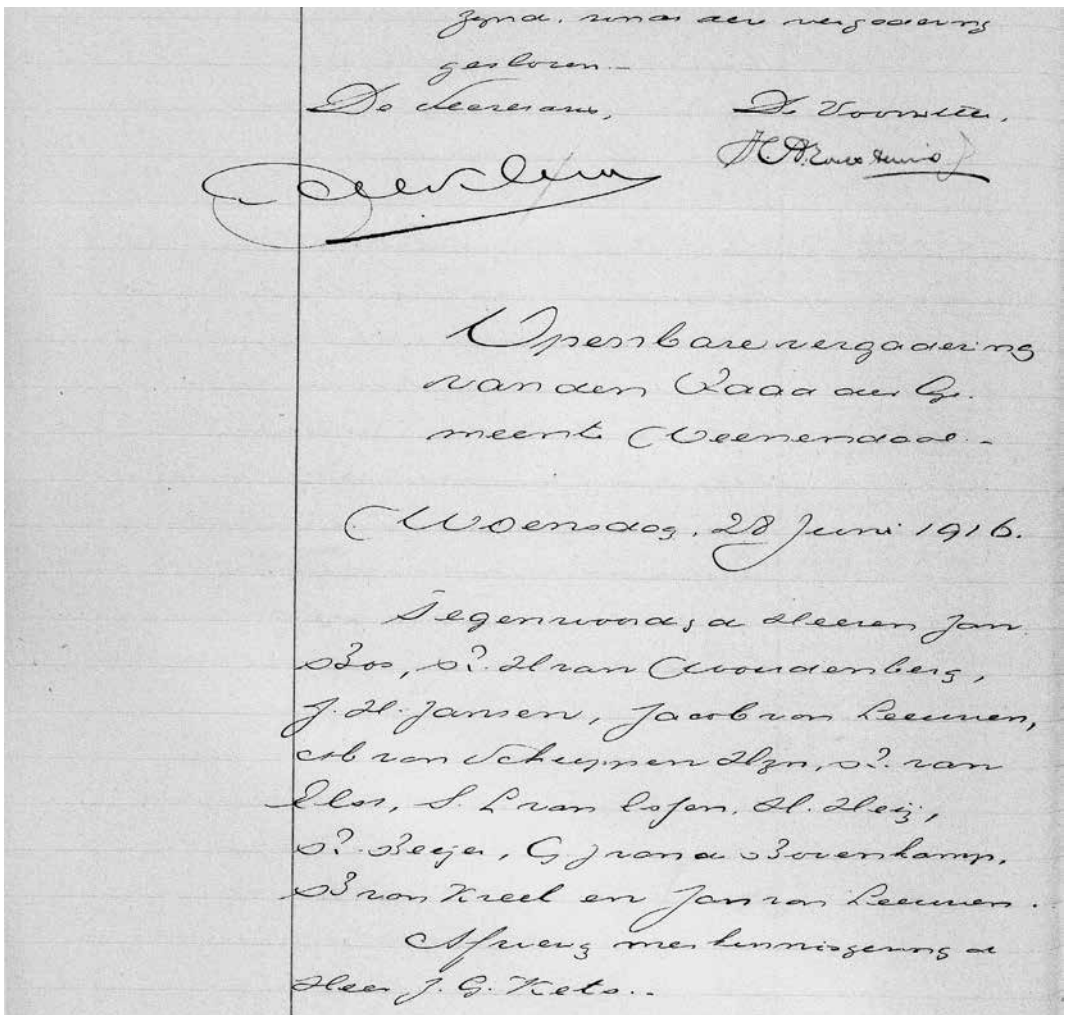 zijnde, wordt de vergadering
gesloten.—
De Secretaris, De Voorzitter,
Openbare vergadering
van den Raad der Ge-
meente Veenendaal.-
Woensdag, 28 Juni 1916.
Tegenwoordig de Heeren Jan
Bos, D. H van Woudenberg,
J. H. Jansen, Jacob van Leeuwen,
van Schuppen Hzn, D. van
Elst, S. L van Essen, H. Heij,
D. Beijer, G J van d Bovenkamp,
B van Kreel en Jan van Leeuwen.
Afwezig met kennisgeving de
Heer J. G. Kets.-